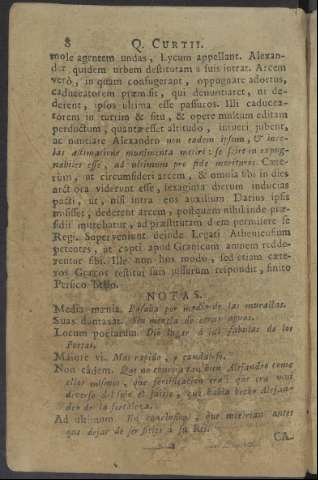 8 Q. CURTII.
mole agentem undas, Lycum appellant. Alexan-
der quidem urbem destitutam a suis intrat. Arcem
verò, in quam confugerant, oppugnare adortus,
caduceatorem præmisit, qui denuntiaret, ni de-
derent, ipsos ultima esse passuros. Illi caducea-
torem in turrim & situ, & opere multum editam
perductum, quanta esset altitudo, intueri jubent,
ac nuntiare Alexandro non eadem ipsum, & inco-
las æstimatione munimenta metiri: se scire inexpug-
nabiles esse, ad ultimum pro fide morituros. Cæte-
rum, ut circumsideri arcem, & omnia sibi in dies
arctiora viderunt esse, sexaginta dierum inducias
pacti, ut, nisi intra eos auxilium Darius ipsis
misisset, dederent arcem, postquam nihil inde præ-
sidii mittebatur, ad præstitutam diem permisere se
Regi. Superveniunt deinde Legati Atheniensium
petentes, ut capti apud Granicum amnem redde-
rentur sibi. Ille non hos modo, sed etiam cæte-
ros Græcos restitui suis jussurum respondit, finito
Persico bello.
NOTAS.
Media mœnia. Pasaba por medio de las murallas.
Suas dumtaxat. Sin mezcla de otras aguas.
Locum poetarum. Dio lugar à las fabulas de los
Poetas.
Maiore vi. Mas rapido, y caudaloso.
Non eadem. Que no conocia tan bien Alejandro como
ellos mismos, que fortificacion era: que era mui
diverso del suyo el juicio, que habia hecho Alejan-
dro de la fortaleza.
Ad ultimum. En conclusion, que moririan antes
que dejar de ser fieles à su Rei.
CA-